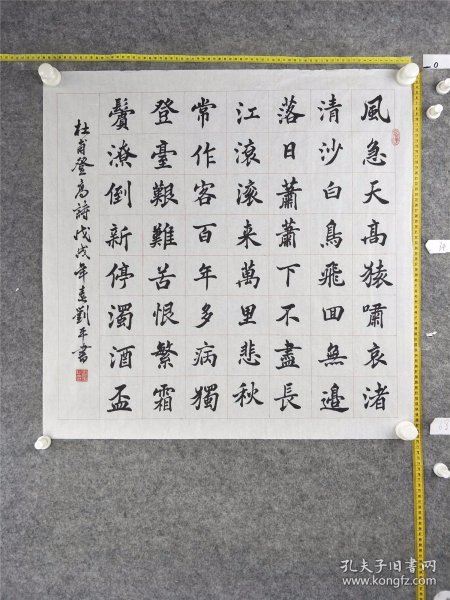 風急天高猿嘯哀渚
清沙白鳥飛回無邊
落日蕭蕭下不盡長
江滾滾来萬里悲秋
常作客百年多病獨
登臺艱難苦恨繁霜
鬢潦倒新停濁酒盃
杜甫登高詩戊戌年春劉平書
孔夫子旧书网
www.kongfz.com